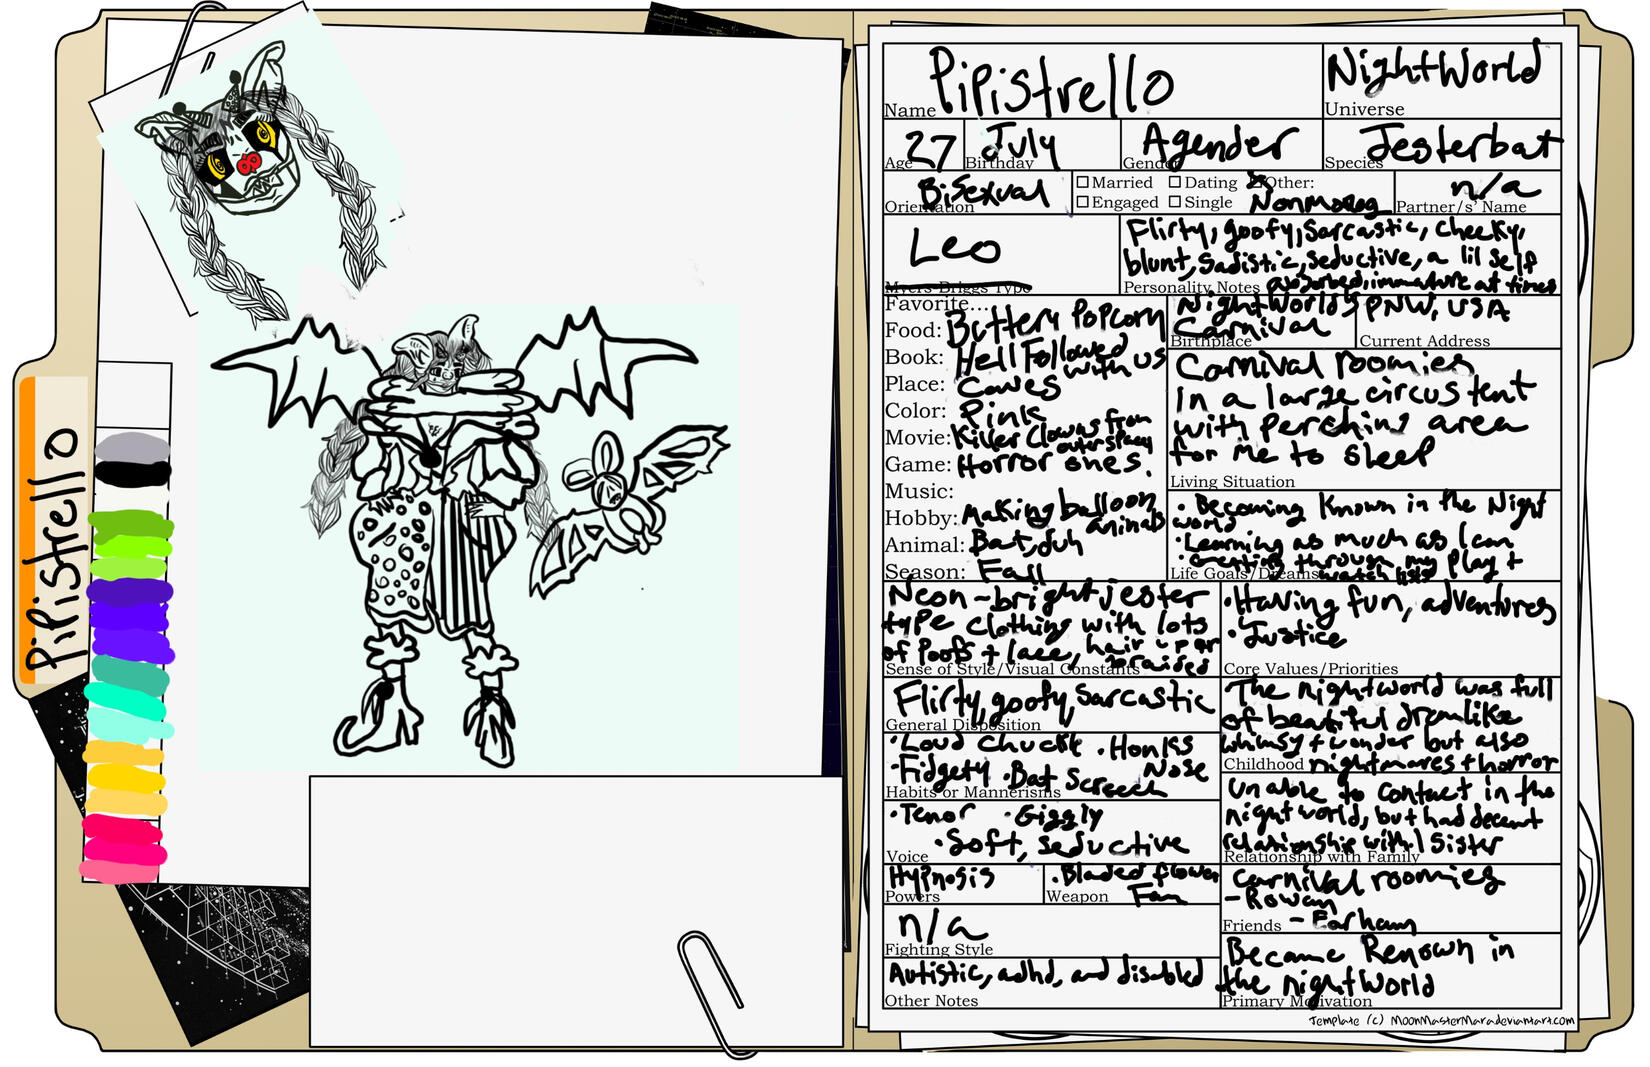 Pipistrello
Name Pipistrello
NightWorld
Universe
Age 27
Birthday July
Gender Agender
Species Jesterbat
Orientation Bisexual
Married Dating Other:
Engaged Single Nonmonog
n/a
Partner/s' Name
Leo
Myers-Briggs Type
Flirty, goofy, sarcastic, cheeky,
blunt, sadistic, seductive, a lil self
Personality Notes absorbed, immature at times
Favorite...
Food: Buttery Popcorn
Book: Hell Followed with us
Place: Caves
Color: Pink
Movie: Killer Clowns from outer space
Game: Horror ones.
Music:
Hobby: Making balloon animals
Animal: Bat, duh
Season: Fall
NightWorld's
Carnival
Birthplace
PNW, USA
Current Address
Carnival roomies
In a large circus tent
with perching area
for me to sleep
Living Situation
• Becoming known in the Night
world
• Learning as much as I can
• Getting through my play +
Life Goals/Dreams watch lists
Neon-bright jester
type clothing with lots
of poofs + lace, hair up or
Sense of Style/Visual Constants braided
• Having fun, adventures
• Justice
Core Values/Priorities
Flirty, goofy, sarcastic
General Disposition
The nightworld was full
of beautiful dremlike
whimsy + wonder but also
Childhood nightmares + horror
• Loud chuckle • Honks Nose
• Fidgety • Bat Screech
Habits or Mannerisms
• Tenor • Giggly
• Soft, seductive
Voice
Unable to contact in the
night world, but had decent
relationship with 1 sister
Relationship with Family
Hypnosis
Powers
• Bladed flower
Weapon Fan
Carnival roomies
- Rowan
Friends - Farham
n/a
Fighting Style
Became Renown in
the nightworld
Primary Motivation
Autistic, adhd, and disabled
Other Notes
Template (c) MoonMasterMara.deviantart.com